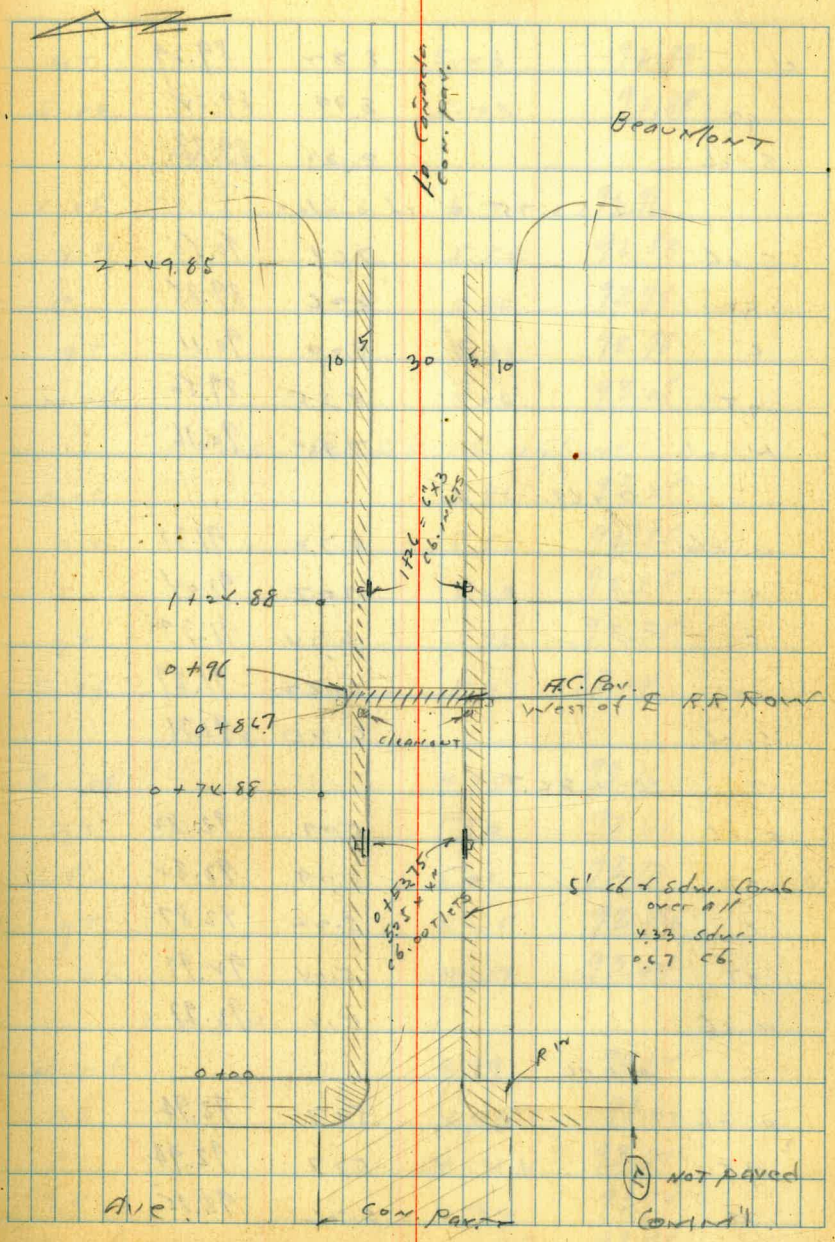 Con. Pav.
Beaumont
2+49.85
10 5 30 5 10
1+26 = 6" x 3
cb. inlets
1+24.88
0+96
A.C. Pav.
West of E R.R. ROW
0+867
cleanout
0+74.88
0+5375
5.25 x 4"
cb. outlets
5' cb & Sdw. Comb.
over all
4.33 sdw.
0.67 cb.
R 12
0+00
12 Not paved
Ave. Con. Pav. Comm'l